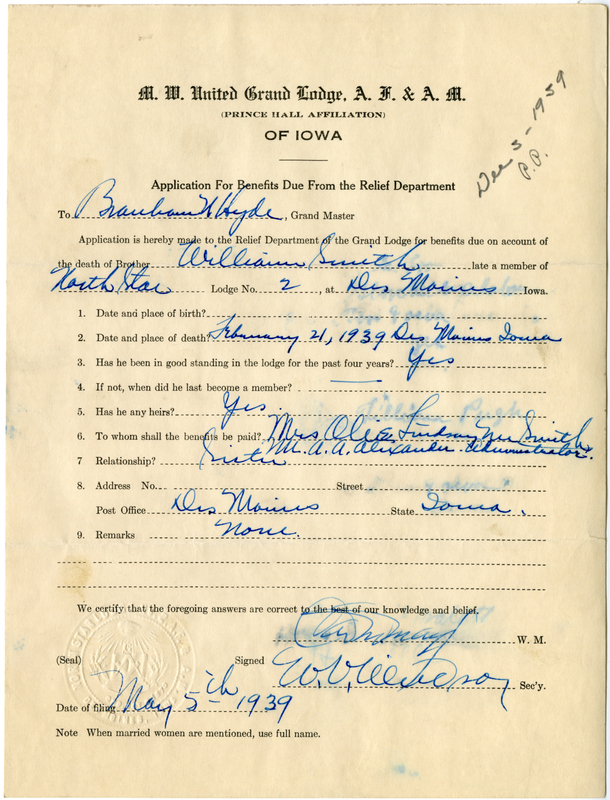 M. W. United Grand Lodge, A. F. & A. M.
(PRINCE HALL AFFILIATION)
OF IOWA
Dec 5-1939
P.P.
Application For Benefits Due From the Relief Department
To Branham N Hyde, Grand Master
Application is hereby made to the Relief Department of the Grand Lodge for benefits due on account of
the death of Brother William Smith late a member of
North Star Lodge No. 2, at Des Moines Iowa.
1. Date and place of birth?
2. Date and place of death? February 21, 1939 Des Moines Iowa
3. Has he been in good standing in the lodge for the past four years? Yes
4. If not, when did he last become a member?
5. Has he any heirs? Yes
6. To whom shall the benefits be paid? Mrs Lindsay Nee Smith
Mr. A. A. Alexander. Administrator.
7 Relationship? Sister
8. Address No. Street
Post Office Des Moines State Iowa.
9. Remarks None.
We certify that the foregoing answers are correct to the best of our knowledge and belief.
W. M.
(Seal) Signed W. V. Sec'y.
Date of filing May 5th 1939
Note When married women are mentioned, use full name.